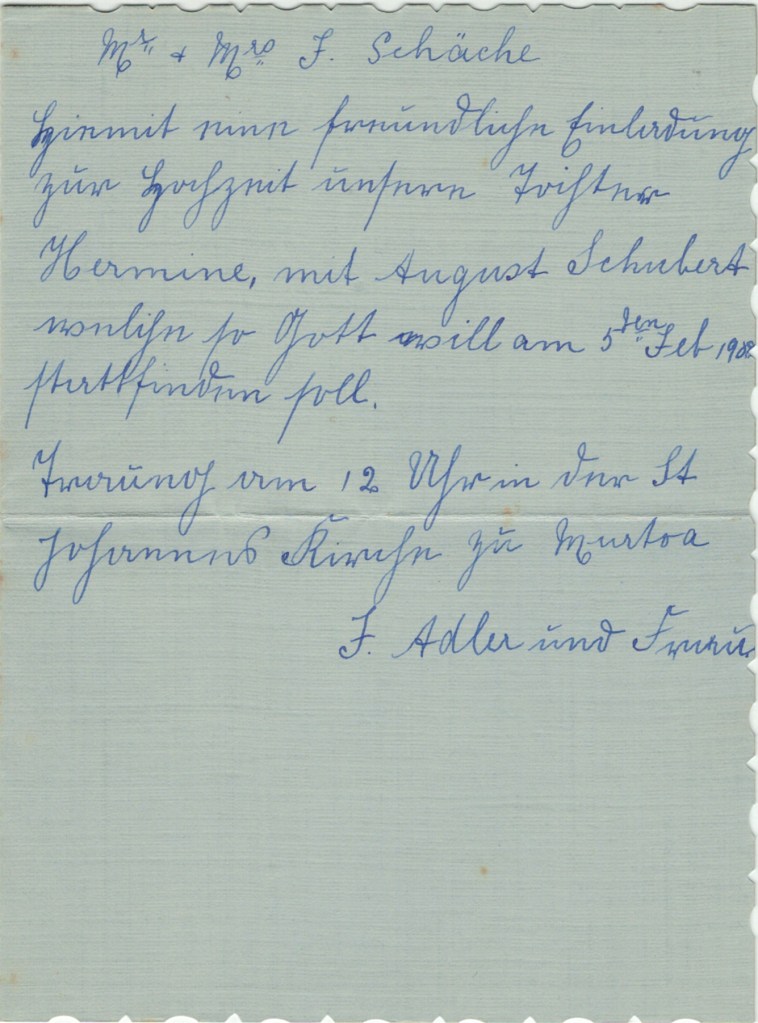 Mr. & Mrs J. Schäche
Hiemit eine freundliche Einladung
zur Hochzeit unsere Tochter
Hermine, mit August Schubert
welche so Gott will am 5ten Feb
stattfinden soll.
Trauung am 12 Uhr in der St
Johannes Kirche zu Murtoa
J. Adler und Frau